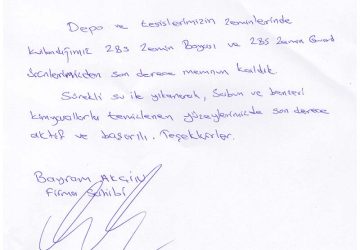 Depo ve tesislerimizin zeminlerinde
kullandığımız 283 Zemin Boyası ve 285 Zemin Guard
ürünlerinizden son derece memnun kaldık.
Sürekli su ile yıkanarak, Sabun ve benzeri
kimyasallarla temizlenen yüzeylerimizde son derece
aktif ve başarılı. Teşekkürler.
Bayram AKGÜN
Firma Sahibi